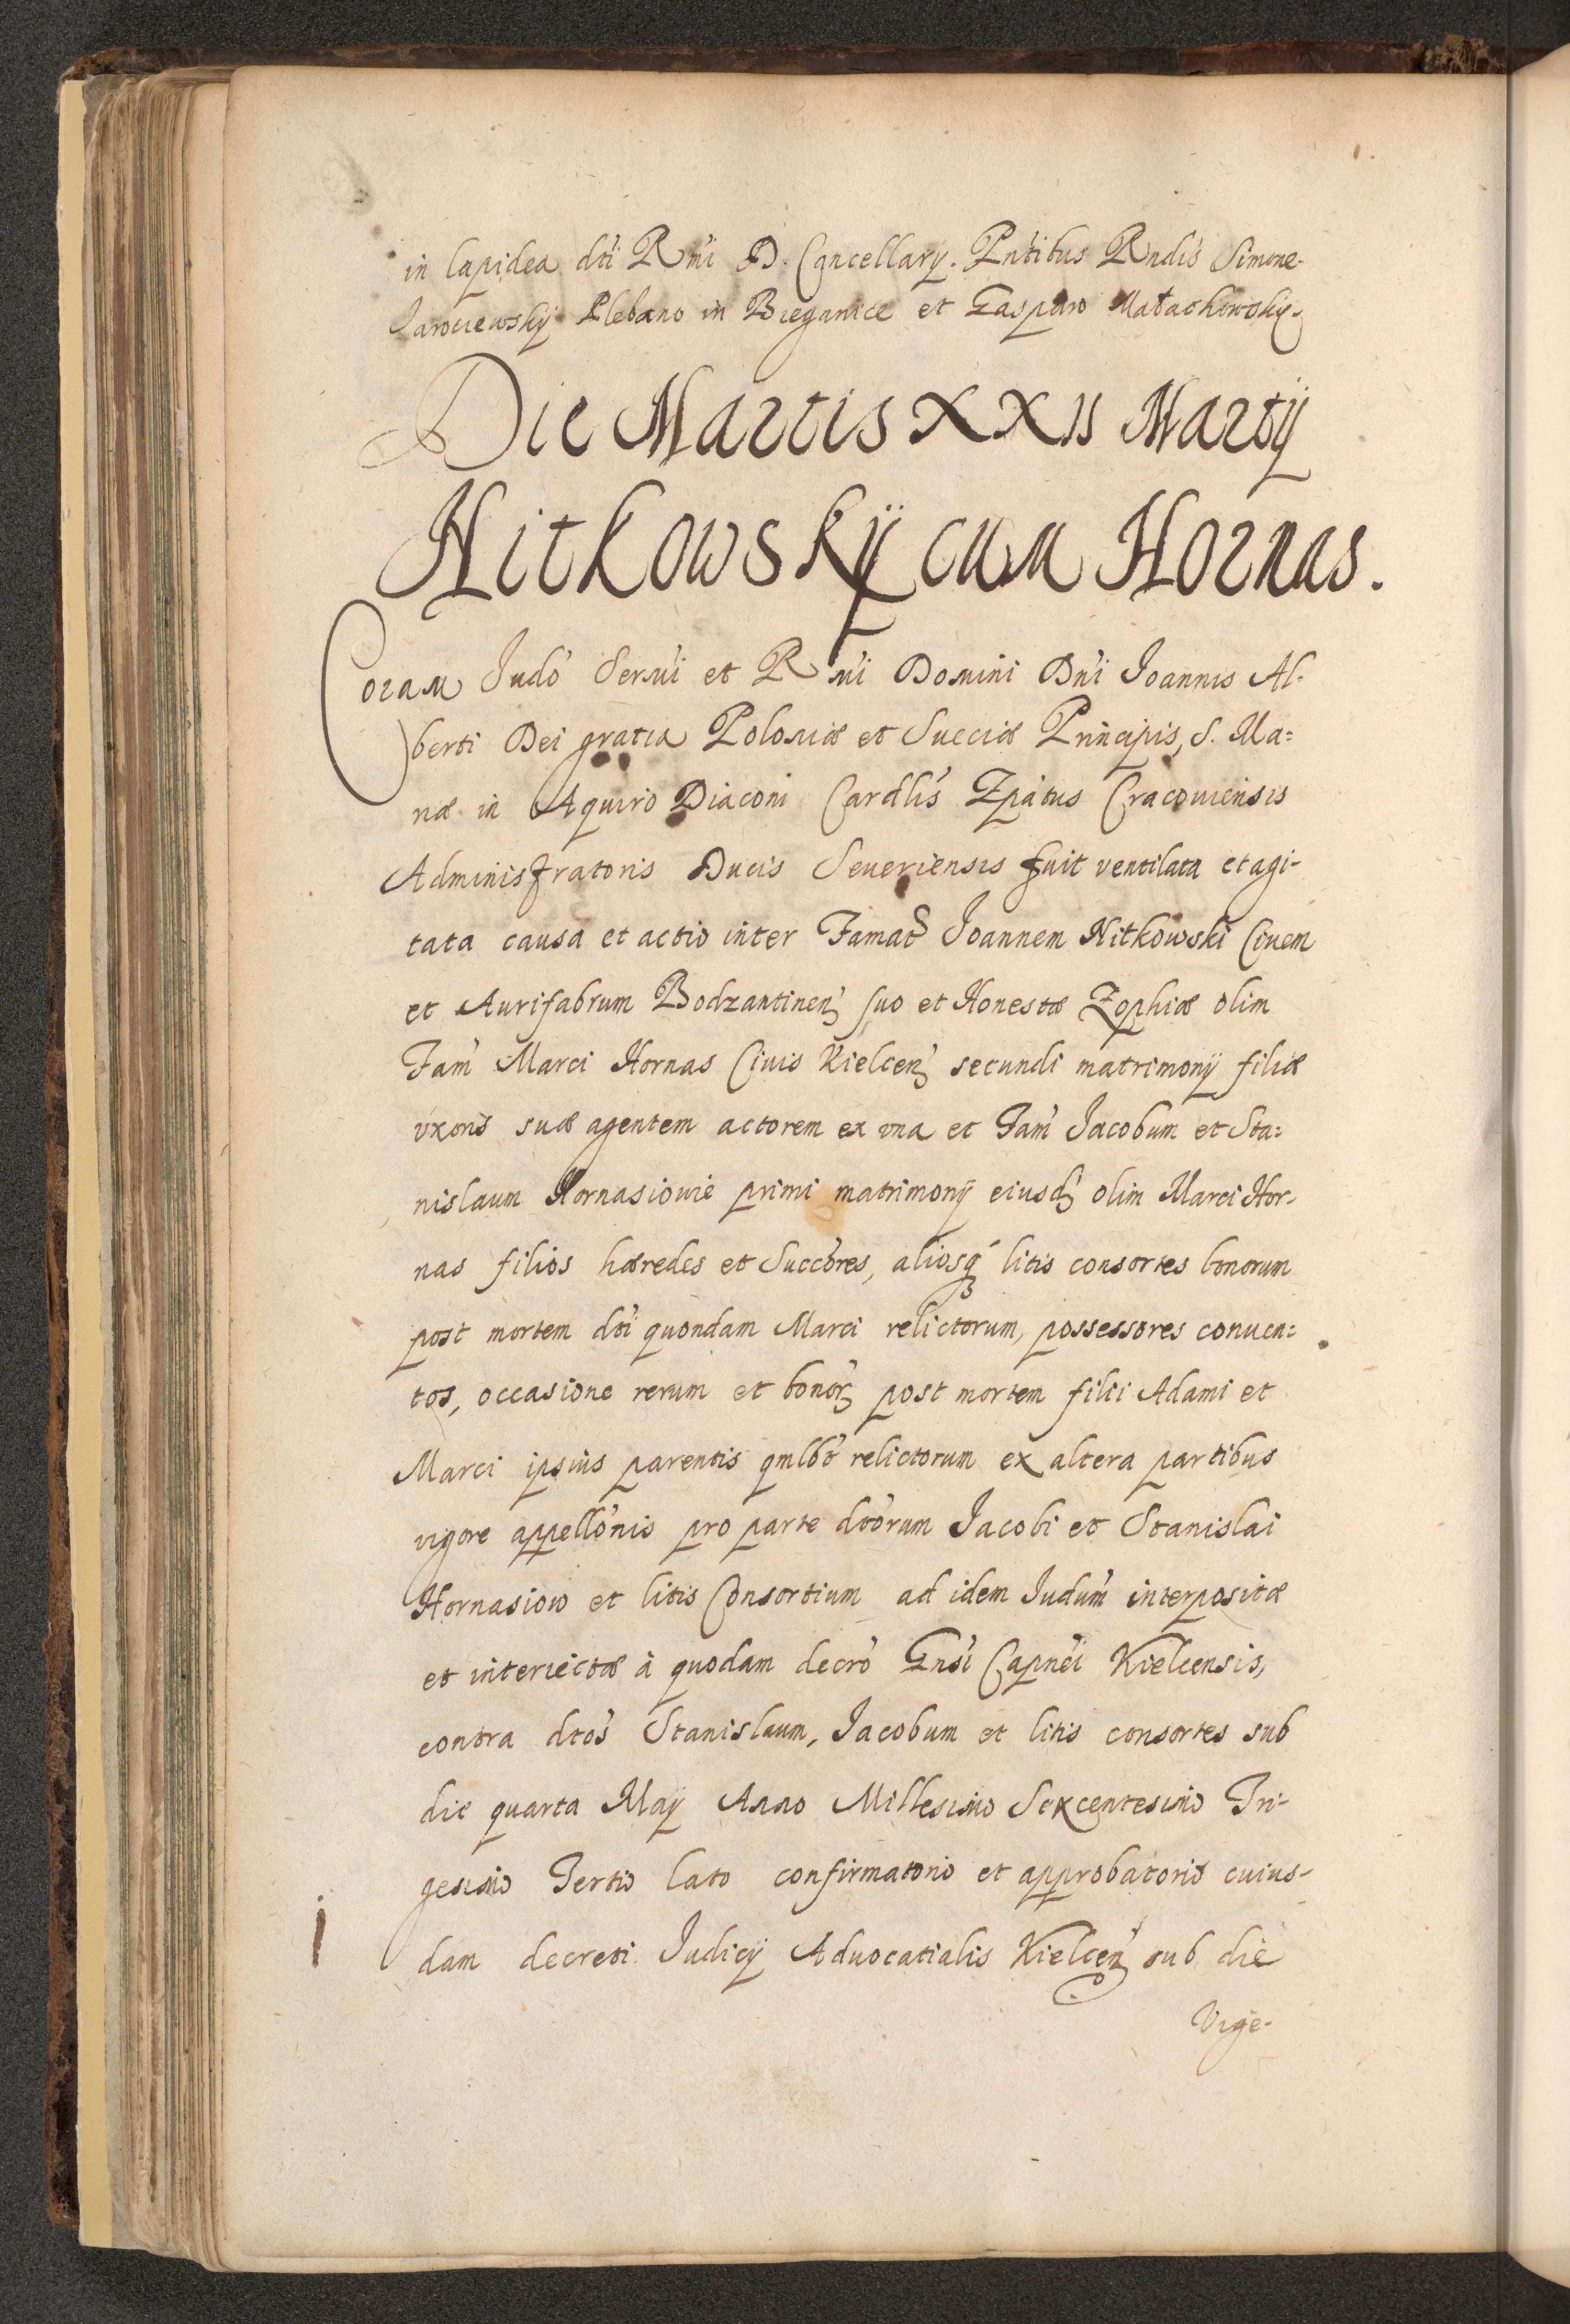 in lapidea dti Rmi D. Cancellarÿ. Pntibus Rndis Simone
Jarociewskÿ Plebano in Bieganice et Gasparo Małachowskÿ.
Die Martis XXII Martÿ
Nitkowskÿ cum Hornas.
Coram Judo Sermi et Rmi Domini Dni Joannis Al-
berti Dei gratia Poloniæ et Sueciæ Principis, S. Ma=
riæ in Aquiro Diaconi Cardlis Epatus Cracouiensis
Administratoris Ducis Seueriensis fuit ventilata et agi-
tata causa et actio inter Famat Joannem Nitkowski Ciuem
et Aurifabrum Bodzantinen suo et Honestæ Zophiæ olim
Fam Marci Hornas Ciuis Kielcen secundi matrimonÿ filiæ
vxoris suæ agentem actorem ex vna et Fam Jacobum et Sta=
nislaum Hornasiowie primi matrimonÿ eiusd olim Marci Hor-
nas filios hæredes et Succores, aliosq litis consortes bonorum
post mortem dti quondam Marci relictorum, possessores conuen=
tos, occasione rerum et bonor post mortem filii Adami et
Marci ipsius parentis qmlbt relictorum ex altera partibus
vigore appellonis pro parte dtorum Jacobi et Stanislai
Hornasiow et litis Consortium ad idem Judum interpositæ
et interiectæ à quodam decro Gnsi Capnei Kielcensis,
contra dtos Stanislaum, Jacobum et litis consortes sub
die quarta Maÿ Anno Millesimo Sexcentesimo Tri-
gesimo Tertio lato confirmatorio et approbatorio cuius-
dam decreti Judicÿ Aduocatialis Kielcen sub die
Vige-